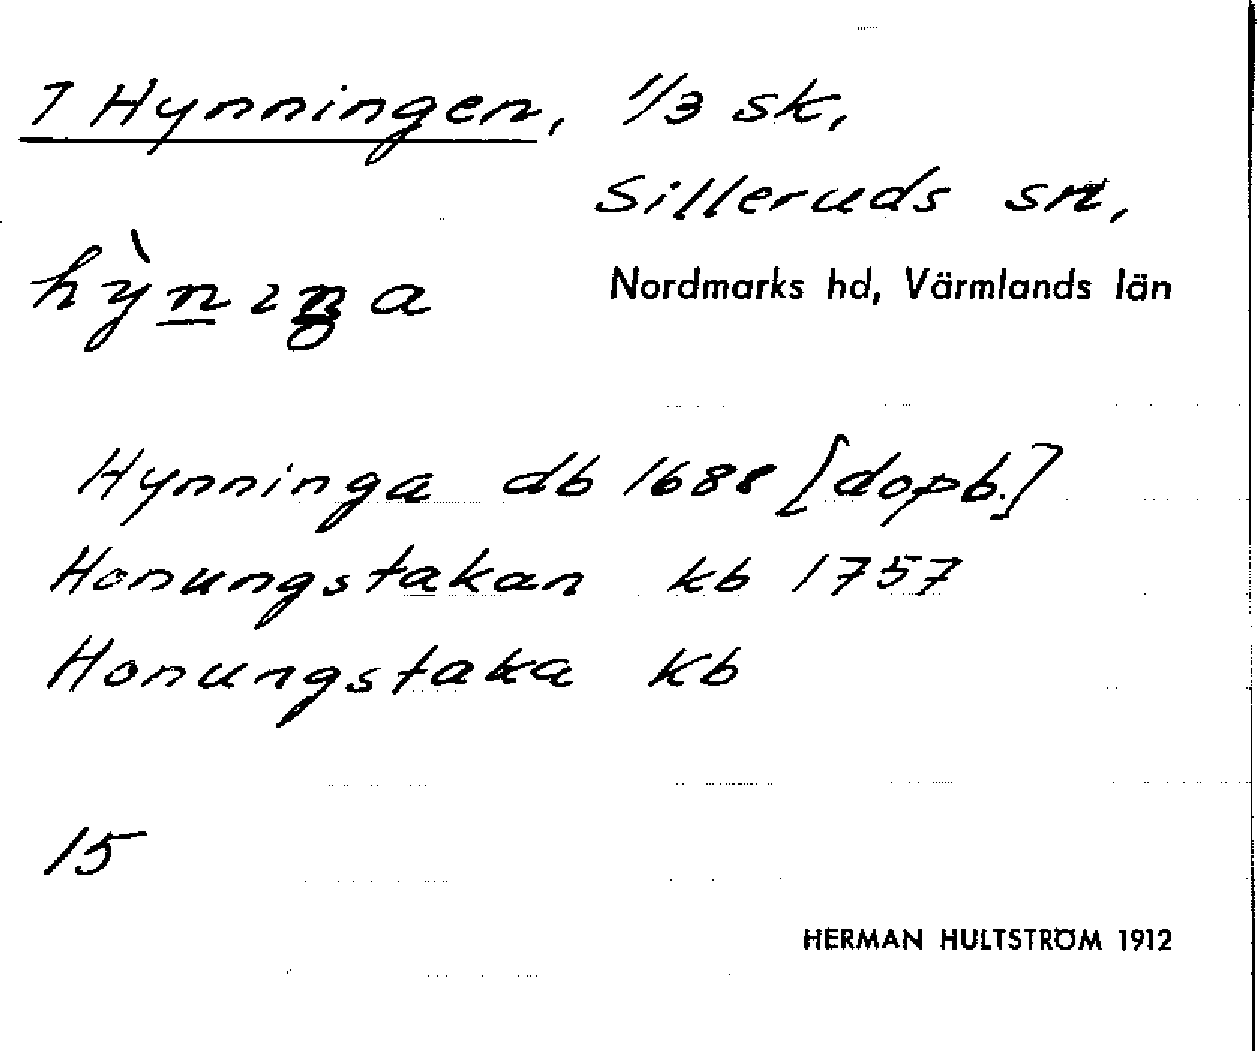 7 Hynningen, 1/3 sk,
Silleruds sn,
Nordmarks hd, Värmlands län
Hynninga db 1688 [dopb.]
Honungstakan kb 1757
Honungstaka kb
15
HERMAN HULTSTRÖM 1912